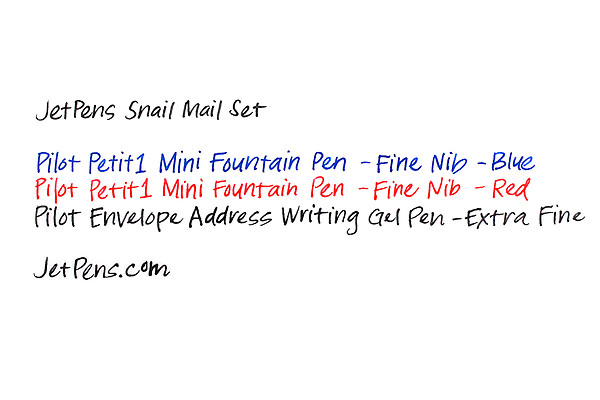 JetPens Snail Mail Set
Pilot Petit1 Mini Fountain Pen - Fine Nib - Blue
Pilot Petit1 Mini Fountain Pen - Fine Nib - Red
Pilot Envelope Address Writing Gel Pen - Extra Fine
JetPens.com